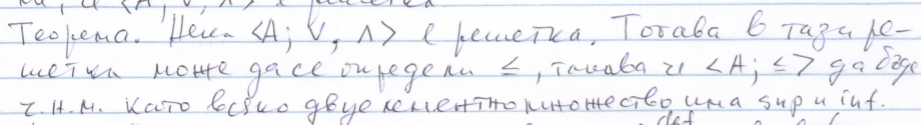 Теорема. Нека <A; ∨, ∧> е решетка. Тогава в тази ре-
шетка може да се определи ≤, такава че <A; ≤> да бъде
ч.н.м. като всяко двуелементно множество има sup и inf.